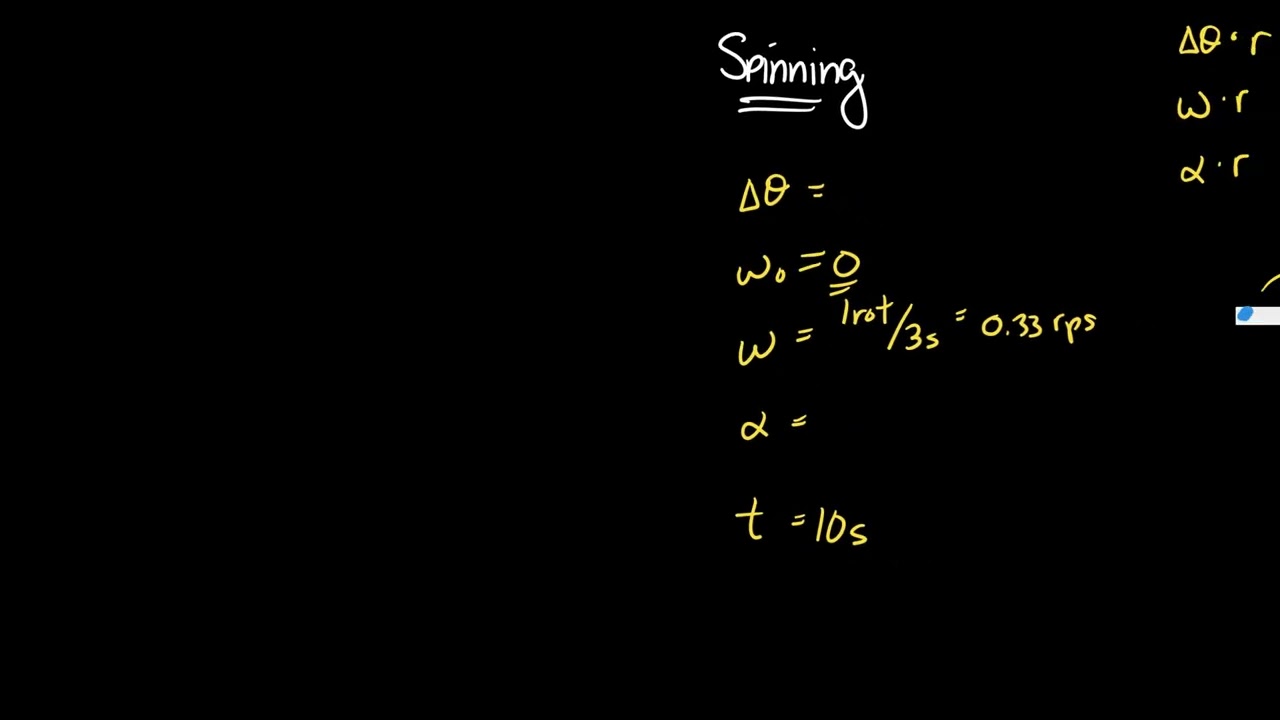 Spinning
Δθ =
ω₀ = 0
ω = 1rot/3s = 0.33 rps
α =
t = 10s
Δθ · r
ω · r
α · r